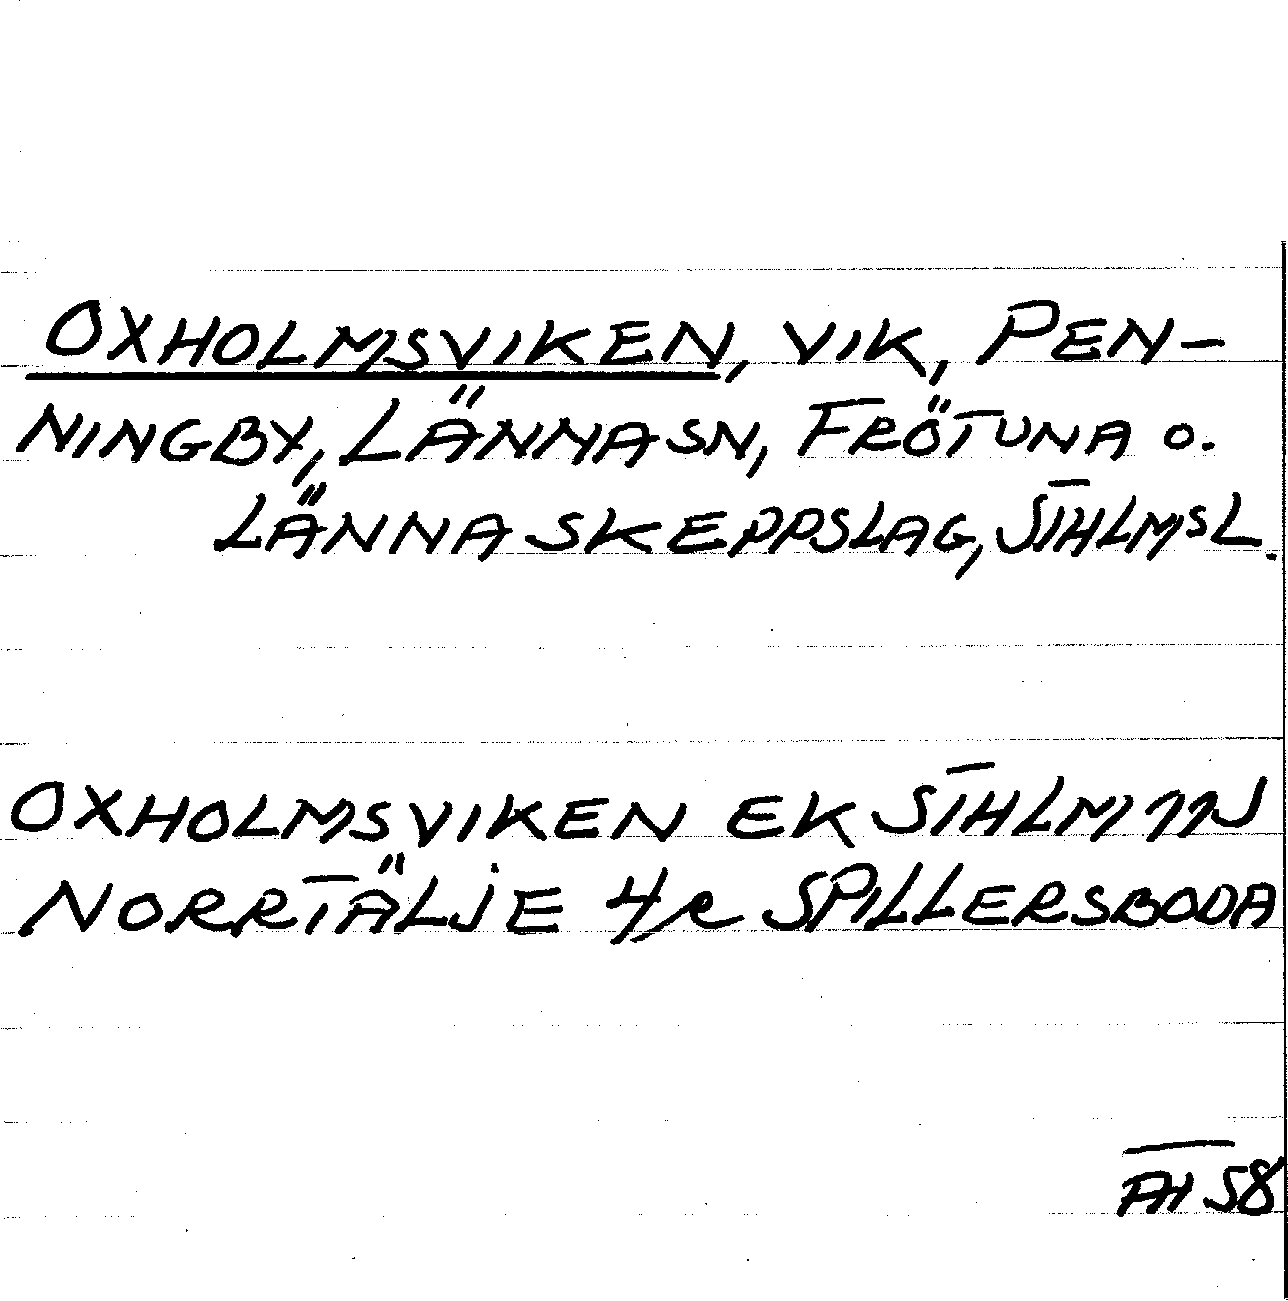 OXHOLMSVIKEN, VIK, PEN-
NINGBY, LÄNNA SN, FRÖTUNA O.
LÄNNA SKEPPSLAG, STHLMSL.
OXHOLMSVIKEN EK STHLM 11J
NORRTÄLJE SPILLERSBODA
58